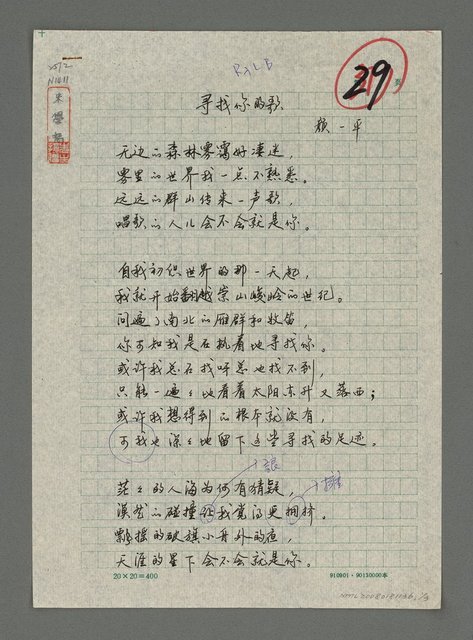 29
寻找你的歌
颜一平
无边的森林雾霭好凄迷，
雾里的世界我一点不熟悉。
远远的群山传来一声歌，
唱歌的人儿会不会就是你。
自我初识世界的那一天起，
我就开始翻越崇山峻岭的世纪。
问遍了南北的雁群和牧笛，
你可知我是在执着地寻找你。
或许我总在找呀总也找不到，
只能一遍々地看着太阳东升又落西；
或许我想得到的根本就没有，
可我也深々地留下这些寻找的足迹。
茫々的人海为何有猜疑，
漠然的碰撞让我觉得更拥挤。
飘摆的破旗小舟外的夜，
天涯的星下会不会就是你。
20×20=400
910901·90130000本